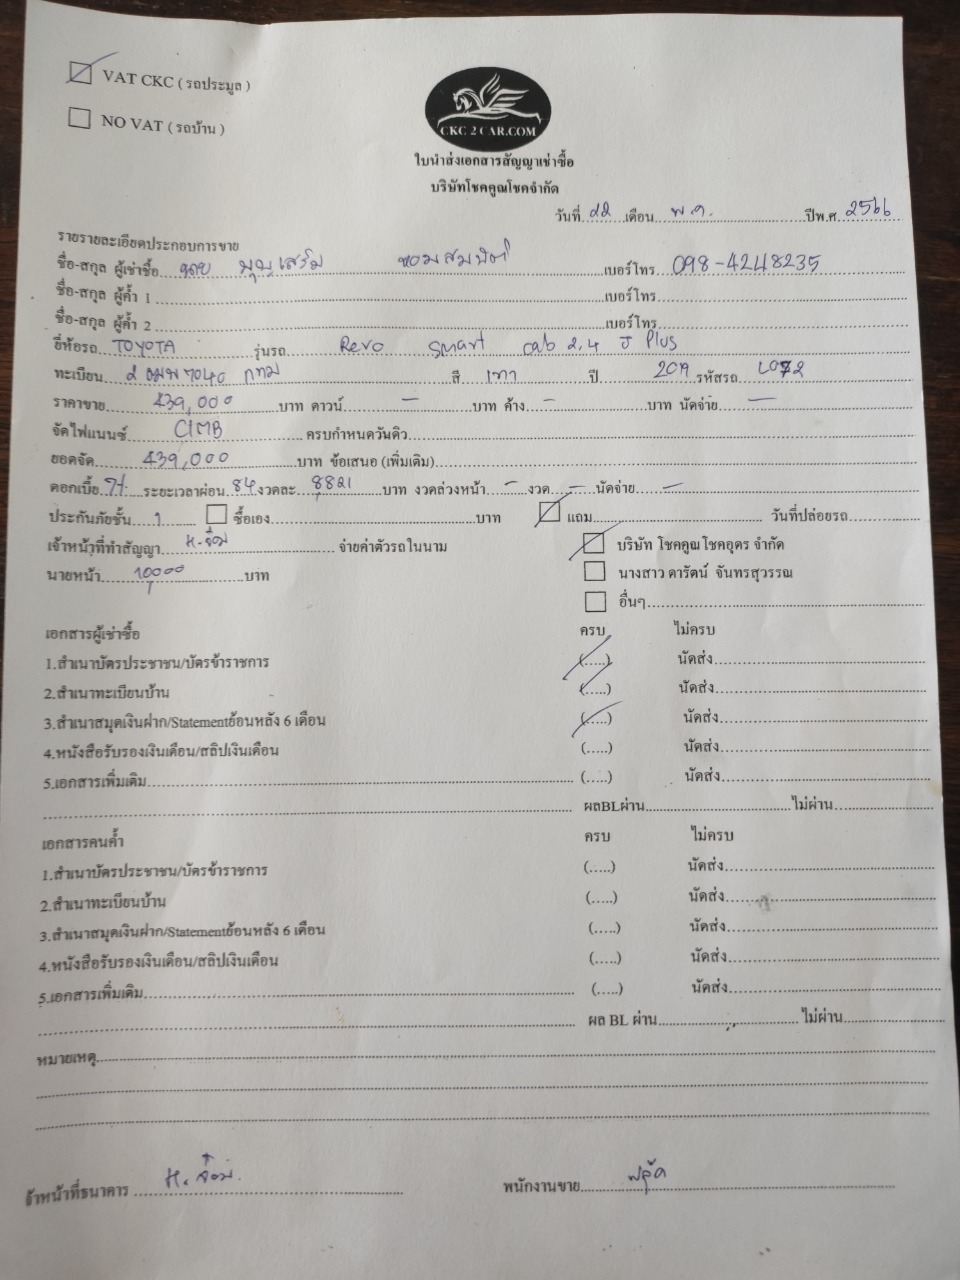 VAT CKC ( รถประมูล )
NO VAT ( รถบ้าน )
CKC 2 CAR.COM
ใบนำส่งเอกสารสัญญาเช่าซื้อ
บริษัทโชคคูณโชคจำกัด
วันที่ 22 เดือน พ.ค. ปีพ.ศ. 2566
รายรายละเอียดประกอบการขาย
ชื่อ-สกุล ผู้เช่าซื้อ นาย บุญเสริม หอมสมบัติ เบอร์โทร 098-4248235
ชื่อ-สกุล ผู้ค้ำ 1 เบอร์โทร
ชื่อ-สกุล ผู้ค้ำ 2 เบอร์โทร
ยี่ห้อรถ TOYOTA รุ่นรถ Revo Smart cab 2.4 J Plus
ทะเบียน 2 ฒพ 7040 กทม สี เทา ปี 2019 รหัสรถ
ราคาขาย 439,000 บาท ดาวน์ - บาท ค้าง - บาท นัดจ่าย -
จัดไฟแนนซ์ CIMB ครบกำหนดวันดิว
ยอดจัด 439,000 บาท ข้อเสนอ (เพิ่มเติม)
ดอกเบี้ย ระยะเวลาผ่อน 84 งวดละ 8821 บาท งวดล่วงหน้า - งวด - นัดจ่าย -
ประกันภัยชั้น 1 ซื้อเอง บาท แถม วันที่ปล่อยรถ
เจ้าหน้าที่ทำสัญญา จ่ายค่าตัวรถในนาม บริษัท โชคคูณโชคอุดร จำกัด
นายหน้า 10000 บาท นางสาว ดารัตน์ จันทรสุวรรณ
อื่นๆ
เอกสารผู้เช่าซื้อ ครบ ไม่ครบ
1.สำเนาบัตรประชาชน/บัตรข้าราชการ (.....) นัดส่ง
2.สำเนาทะเบียนบ้าน (.....) นัดส่ง
3.สำเนาสมุดเงินฝาก/Statementย้อนหลัง 6 เดือน (.....) นัดส่ง
4.หนังสือรับรองเงินเดือน/สลิปเงินเดือน (.....) นัดส่ง
5.เอกสารเพิ่มเติม (.....) นัดส่ง
ผลBLผ่าน ไม่ผ่าน
เอกสารคนค้ำ ครบ ไม่ครบ
1.สำเนาบัตรประชาชน/บัตรข้าราชการ (.....) นัดส่ง
2.สำเนาทะเบียนบ้าน (.....) นัดส่ง
3.สำเนาสมุดเงินฝาก/Statementย้อนหลัง 6 เดือน (.....) นัดส่ง
4.หนังสือรับรองเงินเดือน/สลิปเงินเดือน (.....) นัดส่ง
5.เอกสารเพิ่มเติม (.....) นัดส่ง
ผล BL ผ่าน ไม่ผ่าน
หมายเหตุ
จ้าหน้าที่ธนาคาร พนักงานขาย